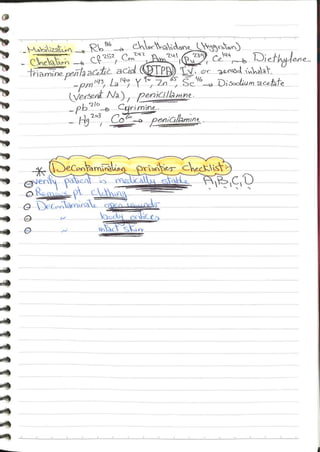 - Mobilization → Rb⁸⁶ → chlorthalidone (Hygroton)
- Chelation → Cf²⁵², Cm²⁴², Am²⁴¹, Pu²³⁹, Ce¹⁴⁴ → Diethylene
triamine penta acetic acid (DTPA) IV. or aerosol inhalat.
- pm¹⁴⁷, La¹⁴⁰, Y⁹⁰, Zn⁶⁵, Sc⁴⁶ → Disodium acetate
(versent Na), penicillamine
- pb²¹⁰ → Cuprimine
- Hg²⁰³, Co⁶⁰ → penicillamine
* Decontamination priorities Checklist:
verify patient is medically stable A,B,C,D
Remove pt clothing
Decontaminate open wounds
〃 body orifices
〃 intact skin